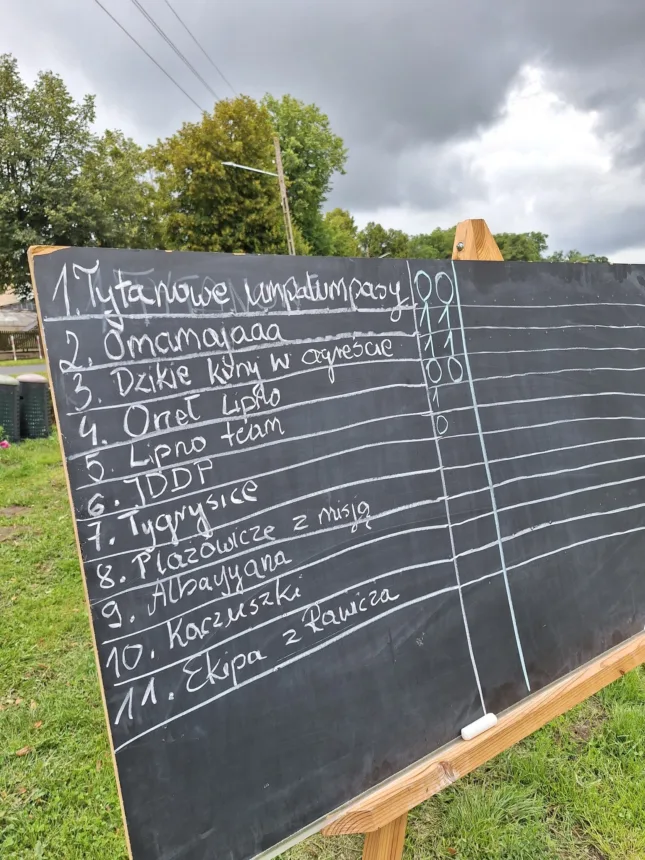 1. Tytanowe umpalumpasy 00
2. Omamajaaa 11
3. Dzikie kuny w agreście 11
4. Orzeł Lipno 00
5. Lipno team 1
6. JDDP 0
7. Tygrysice
8. Plażowicze z misją
9. Albayyana
10. Kaczuszki
11. Ekipa z Rawicza